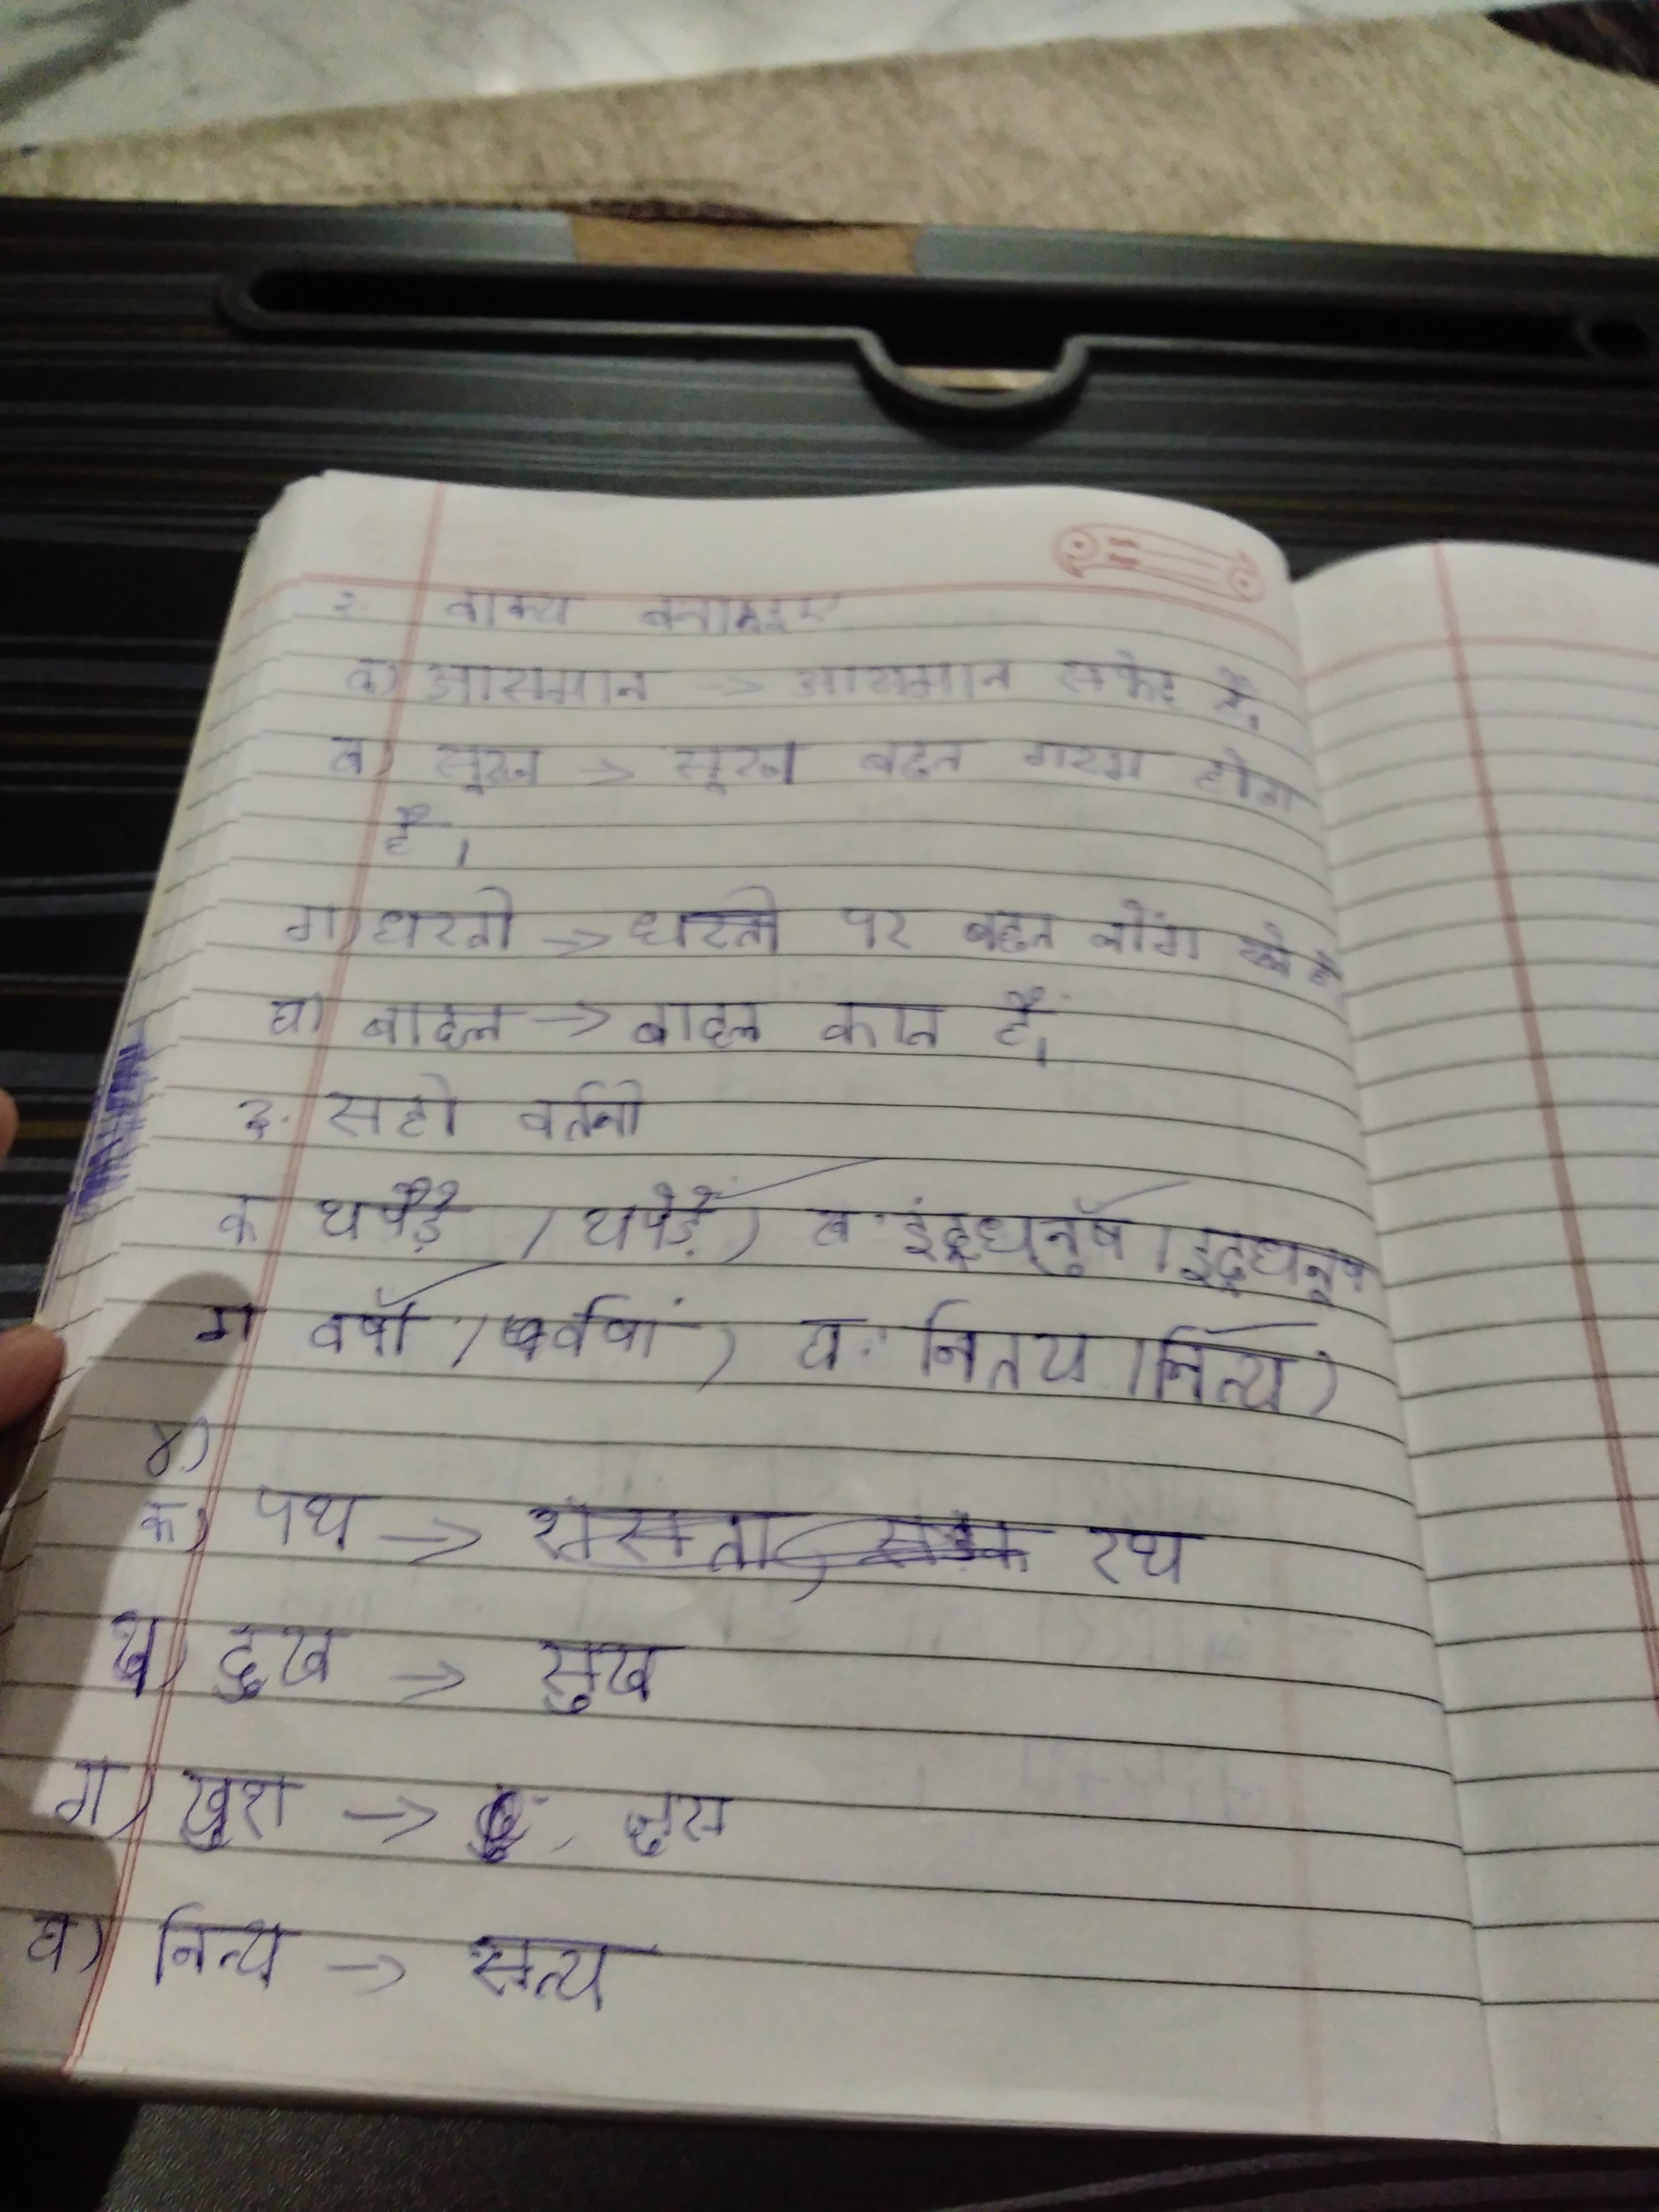 २. वाक्य बनाइए
क) आसमान → आसमान सफेद है।
ख) सूरज → सूरज बहुत गरम होता
है।
ग) धरती → धरती पर बहुत लोग
घ) बादल → बादल काल है।
३. सही वर्तनी
क थपैड़ै / थपेड़ें) ख. इंद्रधनुष / इद्रधनुष
ग वर्षा / वर्षां) घ. नितय / नित्य)
४)
क) पथ → रथ
ख) दुख → सुख
ग) खुश →
घ) नित्य → सत्य